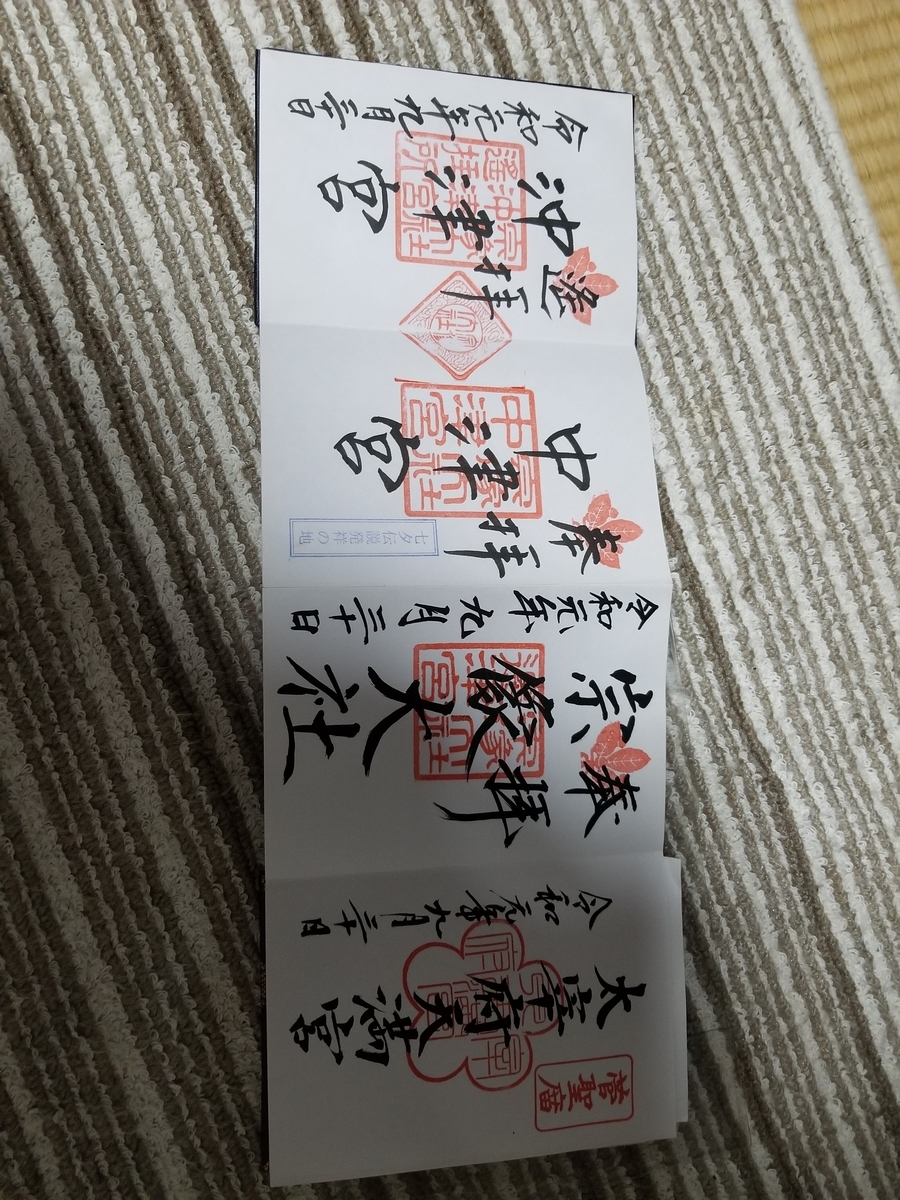 菅聖廟
太宰府天満宮
令和元年九月三十日
奉拝
宗像大社
宗像大社
辺津宮
令和元年九月三十日
七夕伝説発祥の地
奉拝
中津宮
宗像大社
中津宮
遙拝
沖津宮
宗像大社
沖津宮
遙拝所
令和元年九月三十日